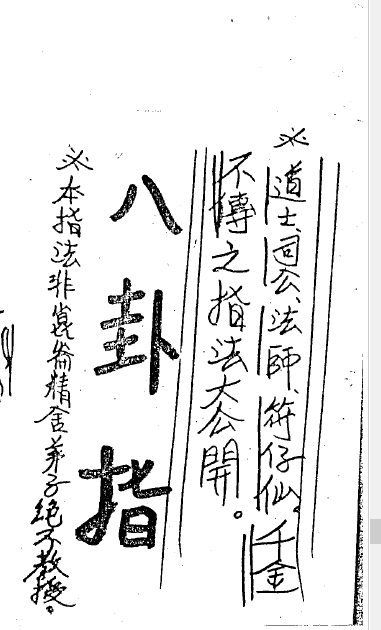 ※道士、司公、法師、符仔仙。千金
不傳之指法大公開。
八卦指
※本指法非崑崙精舍弟子絕不教授。